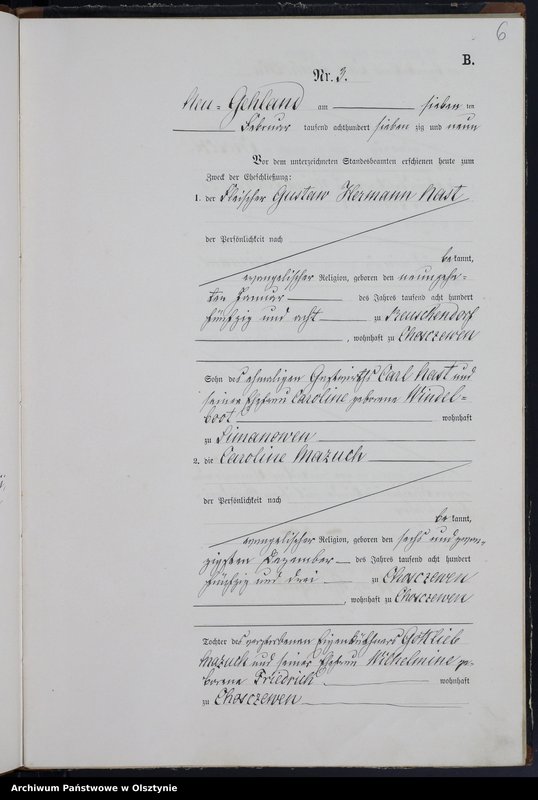 6
B.
Nr. 3.
Neu-Gehland am sieben ten
Februar tausend achthundert sieben zig und neun
Vor dem unterzeichneten Standesbeamten erschienen heute zum
Zweck der Eheschließung:
1. der Fleischer Gustaw Hermann Nast
der Persönlichkeit nach
be kannt,
evangelischer Religion, geboren den neunzehn-
ten Januar des Jahres tausend acht hundert
fünfzig und acht zu Reuschendorf
, wohnhaft zu Chosczewen
Sohn des ehemaligen Gastwirths Carl Nast und
seiner Ehefrau Caroline geborene Windel-
boot wohnhaft
zu Simanowen
2. die Caroline Mazuch
der Persönlichkeit nach
be kannt,
evangelischer Religion, geboren den sechs und zwan-
zigsten Dezember des Jahres tausend acht hundert
fünfzig und drei zu Chosczewen
, wohnhaft zu Chosczewen
Tochter des verstorbenen Eigenkäthners Gottlieb
Mazuch und seiner Ehefrau Wilhelmine ge-
borene Friedrich wohnhaft
zu Chosczewen
Archiwum Państwowe w Olsztynie